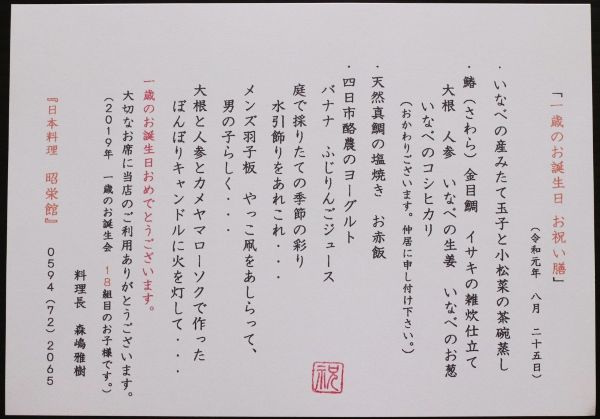 「一歳のお誕生日 お祝い膳」
（令和元年 八月 二十五日）
・いなべの産みたて玉子と小松菜の茶碗蒸し
・鰆（さわら）金目鯛 イサキの雑炊仕立て
大根 人参 いなべの生姜 いなべのお葱
いなべのコシヒカリ
（おかわりございます。仲居に申し付け下さい。）
・天然真鯛の塩焼き お赤飯
・四日市酪農のヨーグルト
バナナ ふじりんごジュース
庭で採りたての季節の彩り
水引飾りをあれこれ・・・
メンズ羽子板 やっこ凧をあしらって、
男の子らしく・・・
大根と人参とカメヤマローソクで作った
ぼんぼりキャンドルに火を灯して・・・
一歳のお誕生日おめでとうございます。
大切なお席に当店のご利用ありがとうございます。
（2019年 一歳のお誕生会 18組目のお子様です。）
料理長 森嶋雅樹
『日本料理 昭栄館』 0594（72）2065
祝